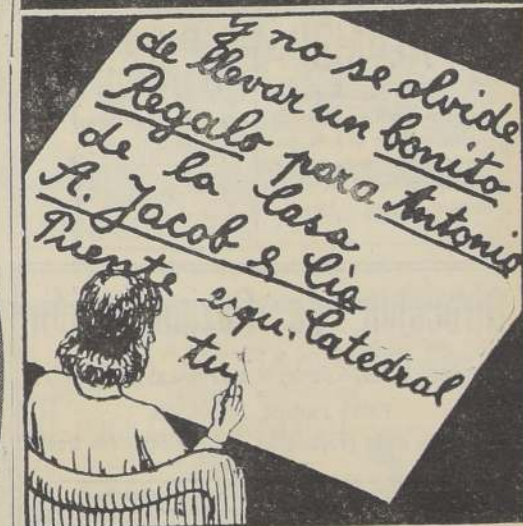 y no se olvide
de llevar un bonito
Regalo para Antonio
de la Casa
A. Jacob & Cia
Puente esqu. Catedral
tu